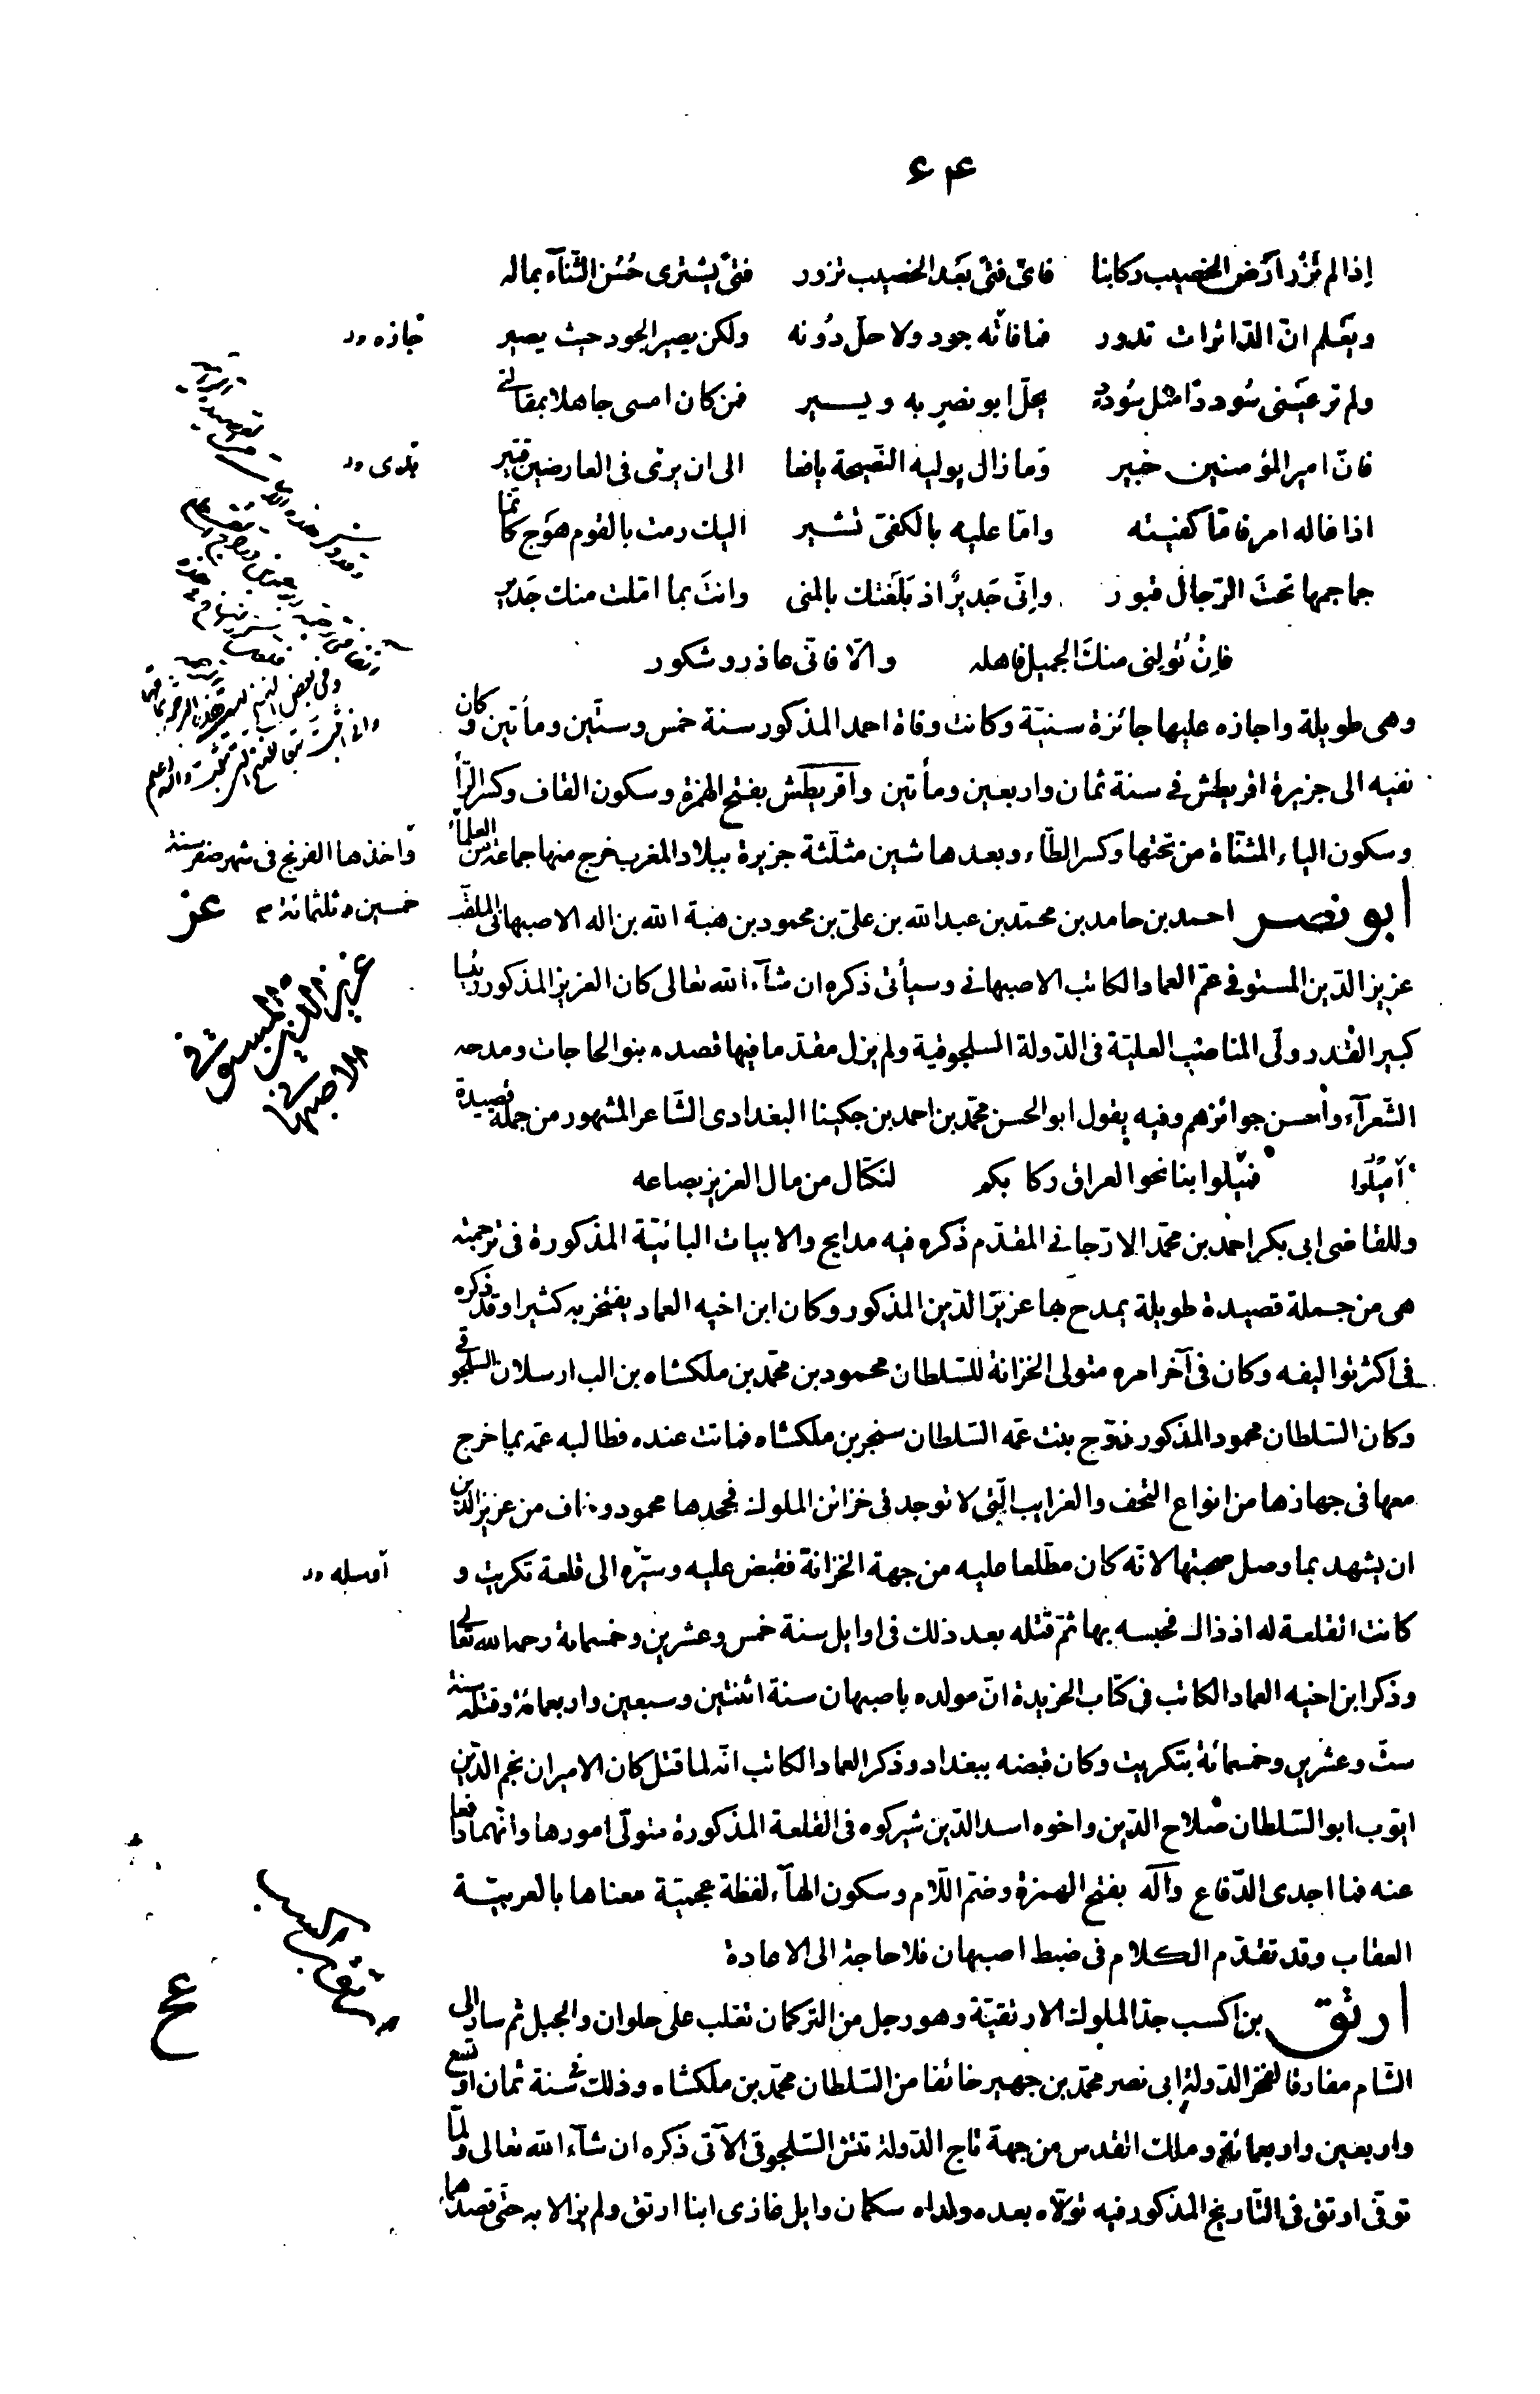 ٦٤
إذا لم تزر أرض الخصيب ركابنا فاىّ فتى بعد الخصيب تزور فتىً يشترى حُسن الثّنآء بماله
ويعلم انّ الدّائرات تدور فما فاته جود ولا حلّ دُونه ولكن يصير الجود حيث يصير
ولم تر عينى سُوددًا مثل سُودده يحلّ ابو نصرٍ به ويسير فمن كان امسى جاهلا بمقالتى
فانّ امير المؤمنين خبير وما زال يوليه النّصيحة يافعا الى ان بدى فى العارضين قتير
اذا غاله امر فامّا كفيته وامّا عليه بالكفىّ تشير اليك رمت بالقوم هوج كانّما
جماجمها تحت الرّحال قبور وانّى جديرٌ اذ بلغتك بالمنى وانت بما امّلت منك جدير
فان تُولنى منك الجميل فاهله والّا فانّى عاذر وشكور
وهى طويلة واجازه عليها جائزة سنيّة وكانت وفاة احمد المذكور سنة خمس وستّين ومأتين وكان
نفيه الى جزيرة اقريطش فى سنة ثمان واربعين ومأتين واقريطش بفتح الهمزة وسكون القاف وكسر الرّآ
وسكون الياء المثنّاة من تحتها وكسر الطّاء وبعدها شين مثلّثة جزيرة ببلاد المغرب خرج منها جماعة من العلمآء
ابو نصر احمد بن حامد بن محمّد بن عبدالله بن علىّ بن محمود بن هبة الله بن اله الاصبهانى الملقّب
عزيز الدّين المستوفى عمّ العماد الكاتب الاصبهانى وسيأتى ذكره ان شآء الله تعالى كان العزيز المذكور رئيسا
كبير القدر ولّى المناصب العليّة فى الدّولة السلجوقية ولم يزل مقدّما فيها قصده بنو الحاجات ومدحه
الشّعرآء وأحسن جوائزهم وفيه يقول ابو الحسن محمّد بن احمد بن جكينا البغدادى الشّاعر المشهور من جملة قصيدة
أميلوا فميلوا بنا نحو العراق ركابكم لنكتال من مال العزيز بصاعه
وللقاضى ابى بكر احمد بن محمّد الارّجانى المقدّم ذكره فيه مدايح والابيات البائيّة المذكورة فى ترجمته
هى من جملة قصيدة طويلة يمدح بها عزيز الدّين المذكور وكان ابن اخيه العماد يفتخر به كثيرا وقد ذكره
فى اكثر تواليفه وكان فى آخر امره متولى الخزانة للسّلطان محمود بن محمّد بن ملكشاه بن الب ارسلان السلجوقى
وكان السّلطان محمود المذكور تزوّج بنت عمّه السّلطان سنجر بن ملكشاه فماتت عنده فطالبه عمّه بما خرج
معها فى جهازها من انواع التّحف والغرايب الّتى لا توجد فى خزائن الملوك فجحدها محمود وخاف من عزيز الدّين
ان يشهد بما وصل صحبتها لانّه كان مطّلعا عليه من جهة الخزانة فقبض عليه وسيّره الى قلعة تكريت و
كانت القلعة له اذ ذاك فحبسه بها ثمّ قتله بعد ذلك فى اوايل سنة خمس وعشرين وخمسمائة رحمه الله تعالى
وذكر ابن اخيه العماد الكاتب فى كتاب الخريدة انّ مولده باصبهان سنة اثنتين وسبعين واربعمائة وقتله سنة
ستّ وعشرين وخمسمائة بتكريت وكان قبضه ببغداد وذكر العماد الكاتب انّه لما قتل كان الاميران نجم الدّين
ايّوب ابو السّلطان صلاح الدّين واخوه اسد الدّين شيركوه فى القلعة المذكورة متولّى امورها وانّهما دافعا
عنه فما اجدى الدّفاع وآله بفتح الهمزة وضمّ اللّام وسكون الهآء لفظة عجميّة معناها بالعربيّة
العقاب وقد تقدّم الكلام فى ضبط اصبهان فلا حاجة الى الاعادة
ارتق بن اكسب جدّ الملوك الارتقيّة وهو رجل من التركمان تغلب على حلوان والجبل ثم سار الى
الشّام مفارقا لفخر الدّولة ابى نصر محمّد بن جهير خائفا من السّلطان محمّد بن ملكشاه وذلك فى سنة ثمان او تسع
واربعين واربعمائة وملك القدس من جهة تاج الدّولة تتش السّلجوقى الآتى ذكره ان شآء الله تعالى ولمّا
توفّى ارتق فى التّاريخ المذكور فيه تولّاه بعده ولداه سكمان وايل غازى ابنا ارتق ولم يزالا به حتّى قصدهما
واخذها الفرنج فى شهر صفر سنة
خمسين وثلثمائة م
عز
عزيز الدين المستوفى
الاصبهانى
عح